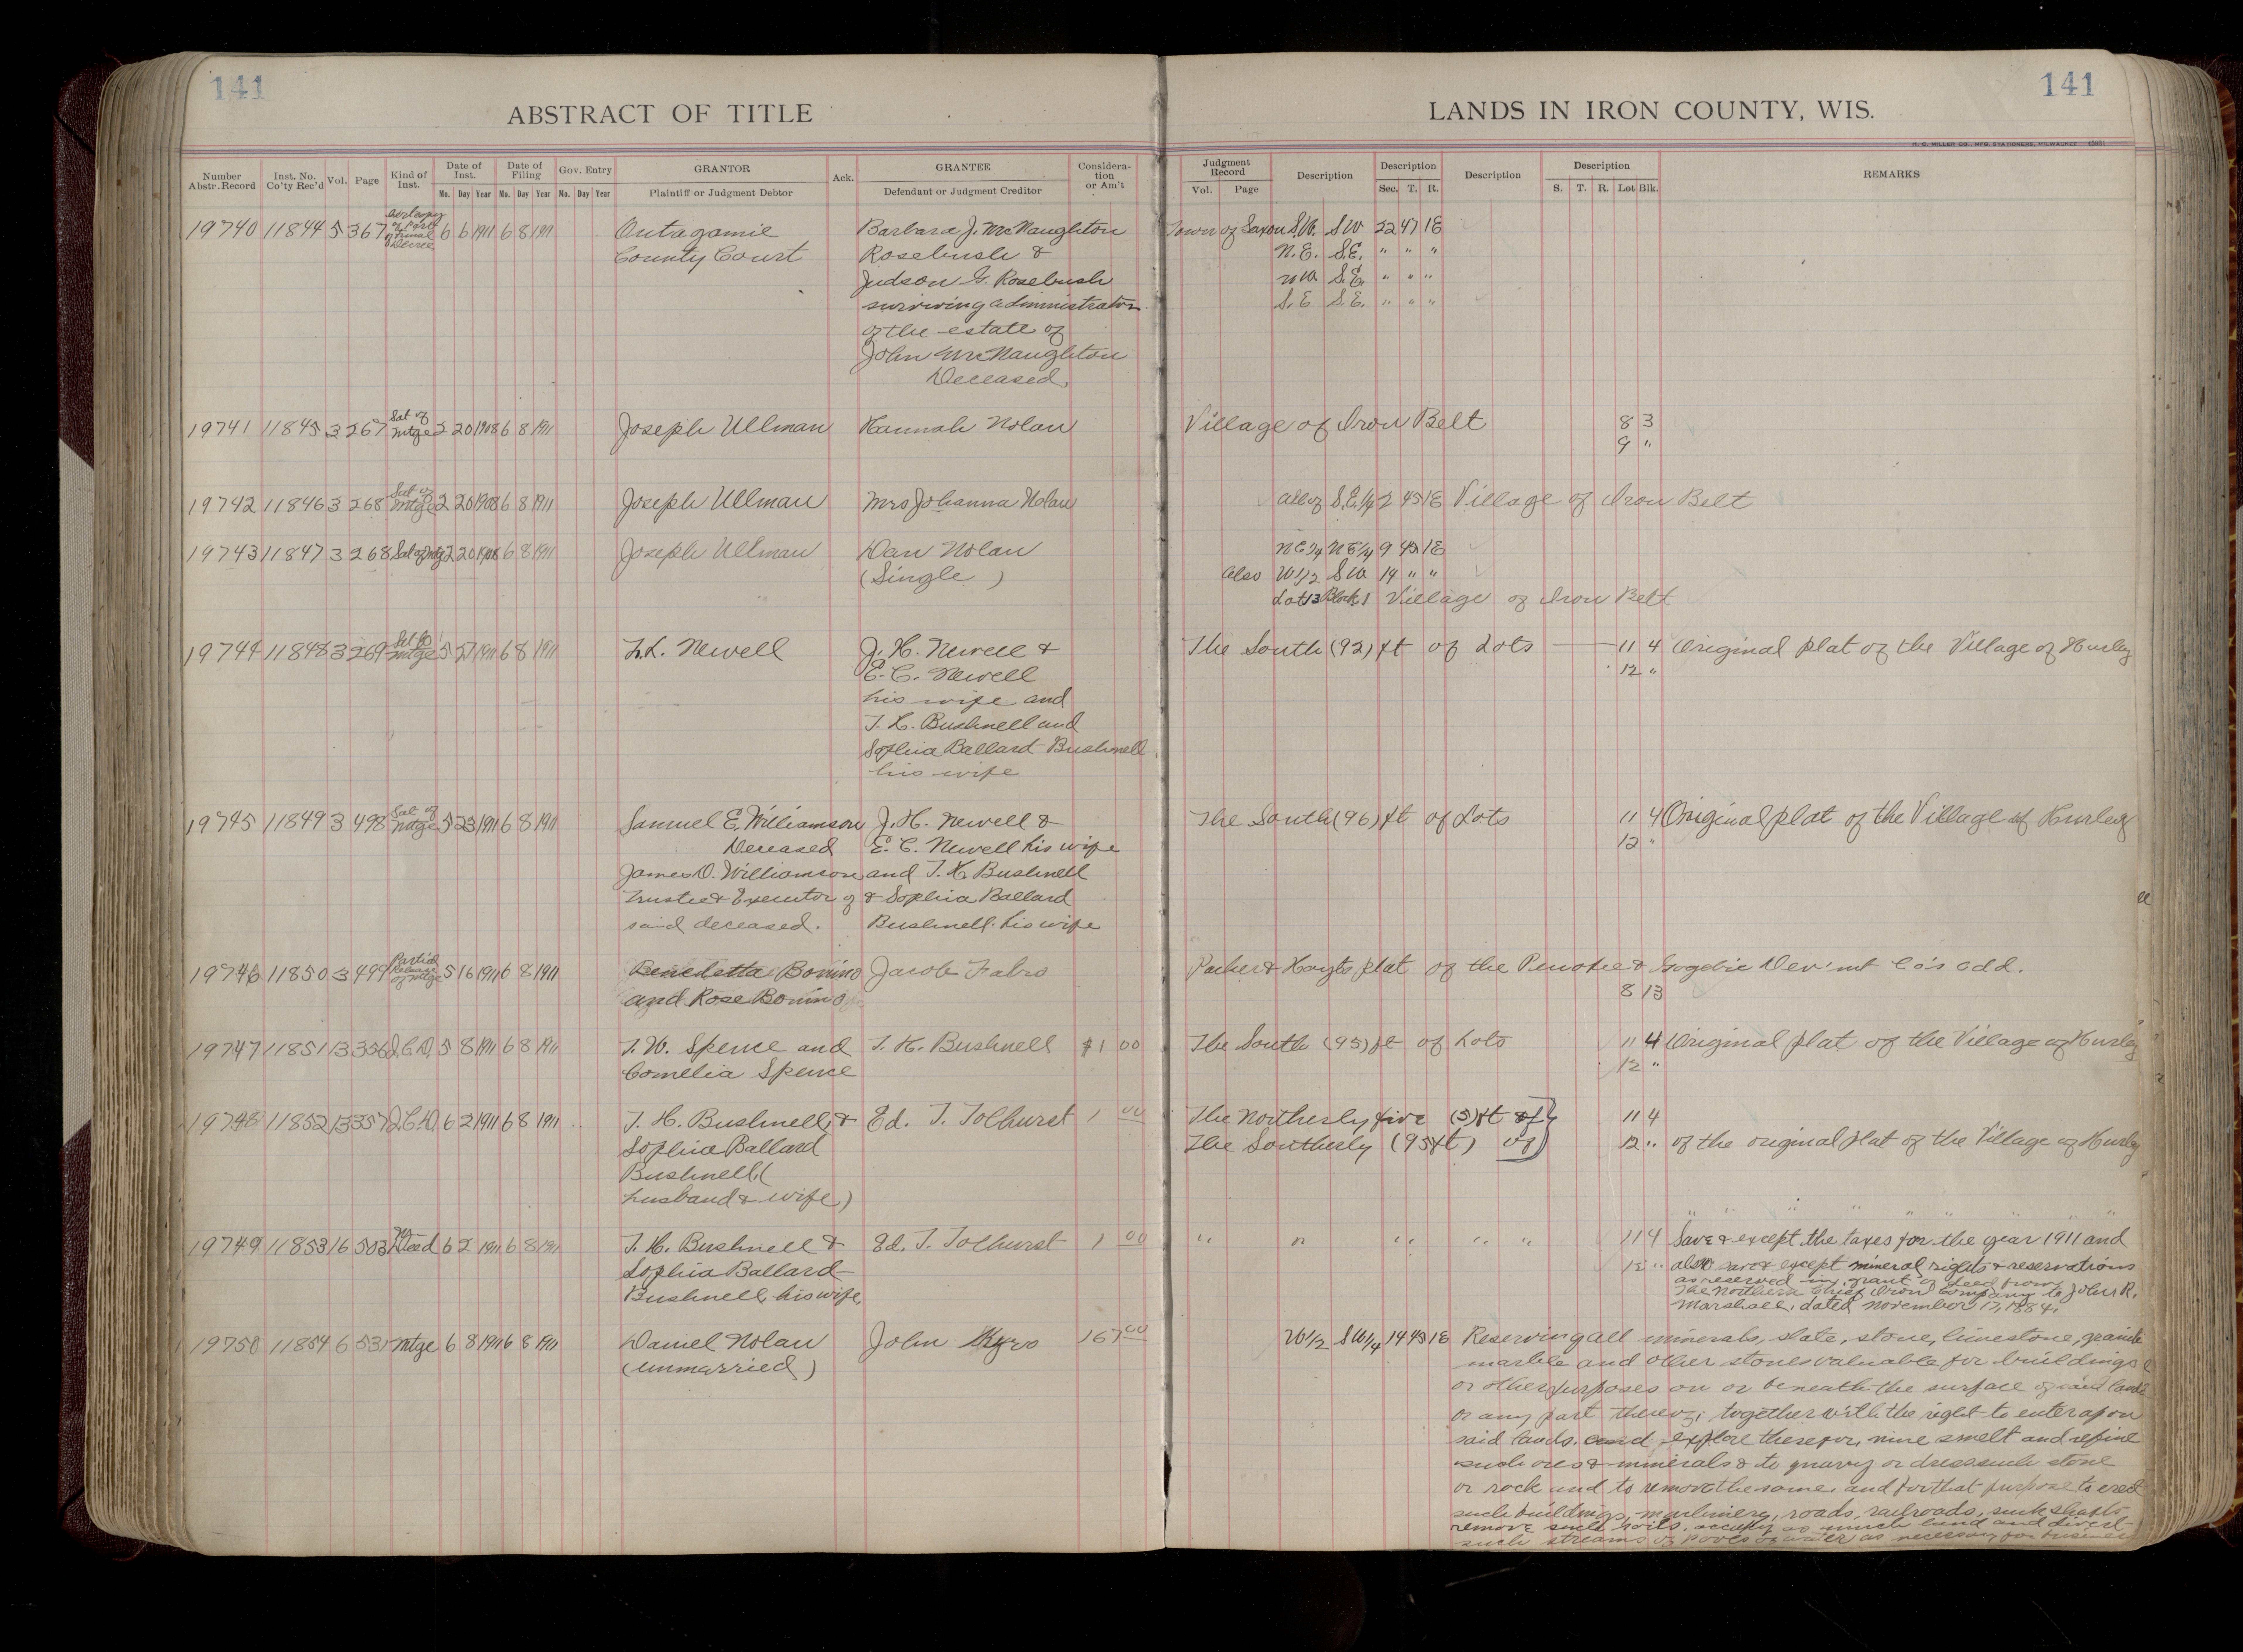 141
141
ABSTRACT OF TITLE
LANDS IN IRON COUNTY, WIS.
H. C. MILLER CO., MFG. STATIONERS, MILWAUKEE
Number Abstr. Record Inst. No. Co'ty Rec'd Vol. Page Kind of Inst. Date of Inst. Mo. Day Year Date of Filing Mo. Day Year Gov. Entry Mo. Day Year GRANTOR Plaintiff or Judgment Debtor Ack. GRANTEE Defendant or Judgment Creditor Considera- tion or Am't
Judgment Record Vol. Page Description Description Sec. T. R. Description Description S. T. R. Lot Blk. REMARKS
19740 11844 5 367 of Final Decree 6 6 1911 6 8 1911 Outagamie Barbara J. McNaughton Town of Saxon S.W. SW 22 47 1E
County Court Rosebush & N.E. S.E. " " "
Judson G. Rosebush NW. S.E. " " "
surviving administrators S.E S.E. " " "
of the estate of
John McNaughton
Deceased.
19741 11845 3 267 Sat of Mtge 2 20 1908 6 8 1911 Joseph Ullman Hannah Nolan Village of Iron Belt 8 3
9 "
19742 11846 3 268 Sat of Mtge 2 20 1908 6 8 1911 Joseph Ullman Mrs Johanna Nolan All of S.E.1/4 2 45 1E Village of Iron Belt
19743 11847 3 268 Sat of Mtge 2 20 1908 6 8 1911 Joseph Ullman Dan Nolan NE1/4 NE1/4 9 45 1E
(Single ) Also W1/2 SW 14 " "
Lot 13 Block 1 Village of Iron Belt
19744 11848 3 269 Mtge 5 27 1911 6 8 1911 Newell J. H. Newell & The South (92) ft of Lots 11 4 Original plat of the Village of Hurley
E. C. Newell 12 "
his wife and
T. H. Bushnell and
Sophia Ballard Bushnell
his wife
19745 11849 3 498 Sat of Mtge 5 23 1911 6 8 1911 Samuel E. Williamson J. H. Newell & The South (96) ft of Lots 11 4 Original plat of the Village of Hurley
Deceased E. C. Newell his wife 12 "
James D. Williamson and T. H. Bushnell
Trustee & Executor of & Sophia Ballard
said deceased. Bushnell his wife
19746 11850 3 499 Partial Release of Mtge 5 16 1911 6 8 1911 Benedetta Bonino Jacob Fabro Parker & Hoyts plat of the Penokee & Gogebic Dev'mt Co's add.
and Rose Bonino 8 13
19747 11851 13 356 Q.C.D. 5 8 1911 6 8 1911 T. W. Spence and T. H. Bushnell $1 00 The South (95) ft of Lots 11 4 Original plat of the Village of Hurley
Cornelia Spence 12 "
19748 11852 13 357 Q.C.D. 6 2 1911 6 8 1911 T. H. Bushnell & Ed. T. Tolhurst 1 00 The Northerly five (5) ft of 11 4
Sophia Ballard The Southerly (95 ft) of 12 " of the original plat of the Village of Hurley
Bushnell, (
husband & wife)
" " " " " " "
19749 11853 16 503 W Deed 6 2 1911 6 8 1911 T. H. Bushnell & Ed. T. Tolhurst 1 00 " " " " " 11 4 Save & except the taxes for the year 1911 and
Sophia Ballard 12 " also save & except mineral rights & reservations
Bushnell, his wife, as reserved in grant of deed from
The Northern Chief Iron Company to John R.
Marshall, dated November 17, 1884.
19750 11854 6 531 Mtge 6 8 1911 6 8 1911 Daniel Nolan John 167 00 W1/2 SW1/4 14 45 1E Reserving all minerals, slate, stone, limestone, granite
(unmarried) marble and other stones valuable for buildings
or other purposes on or beneath the surface of said lands
or any part thereof, together with the right to enter upon
said lands, and explore therefor, mine smelt and refine
such ores & minerals & to quarry or dress such stone
or rock and to remove the same, and for that purpose to erect
such buildings, machinery, roads, railroads, sink shafts
remove such soils, occupy as much land and divert
such streams of pools of water as necessary for business